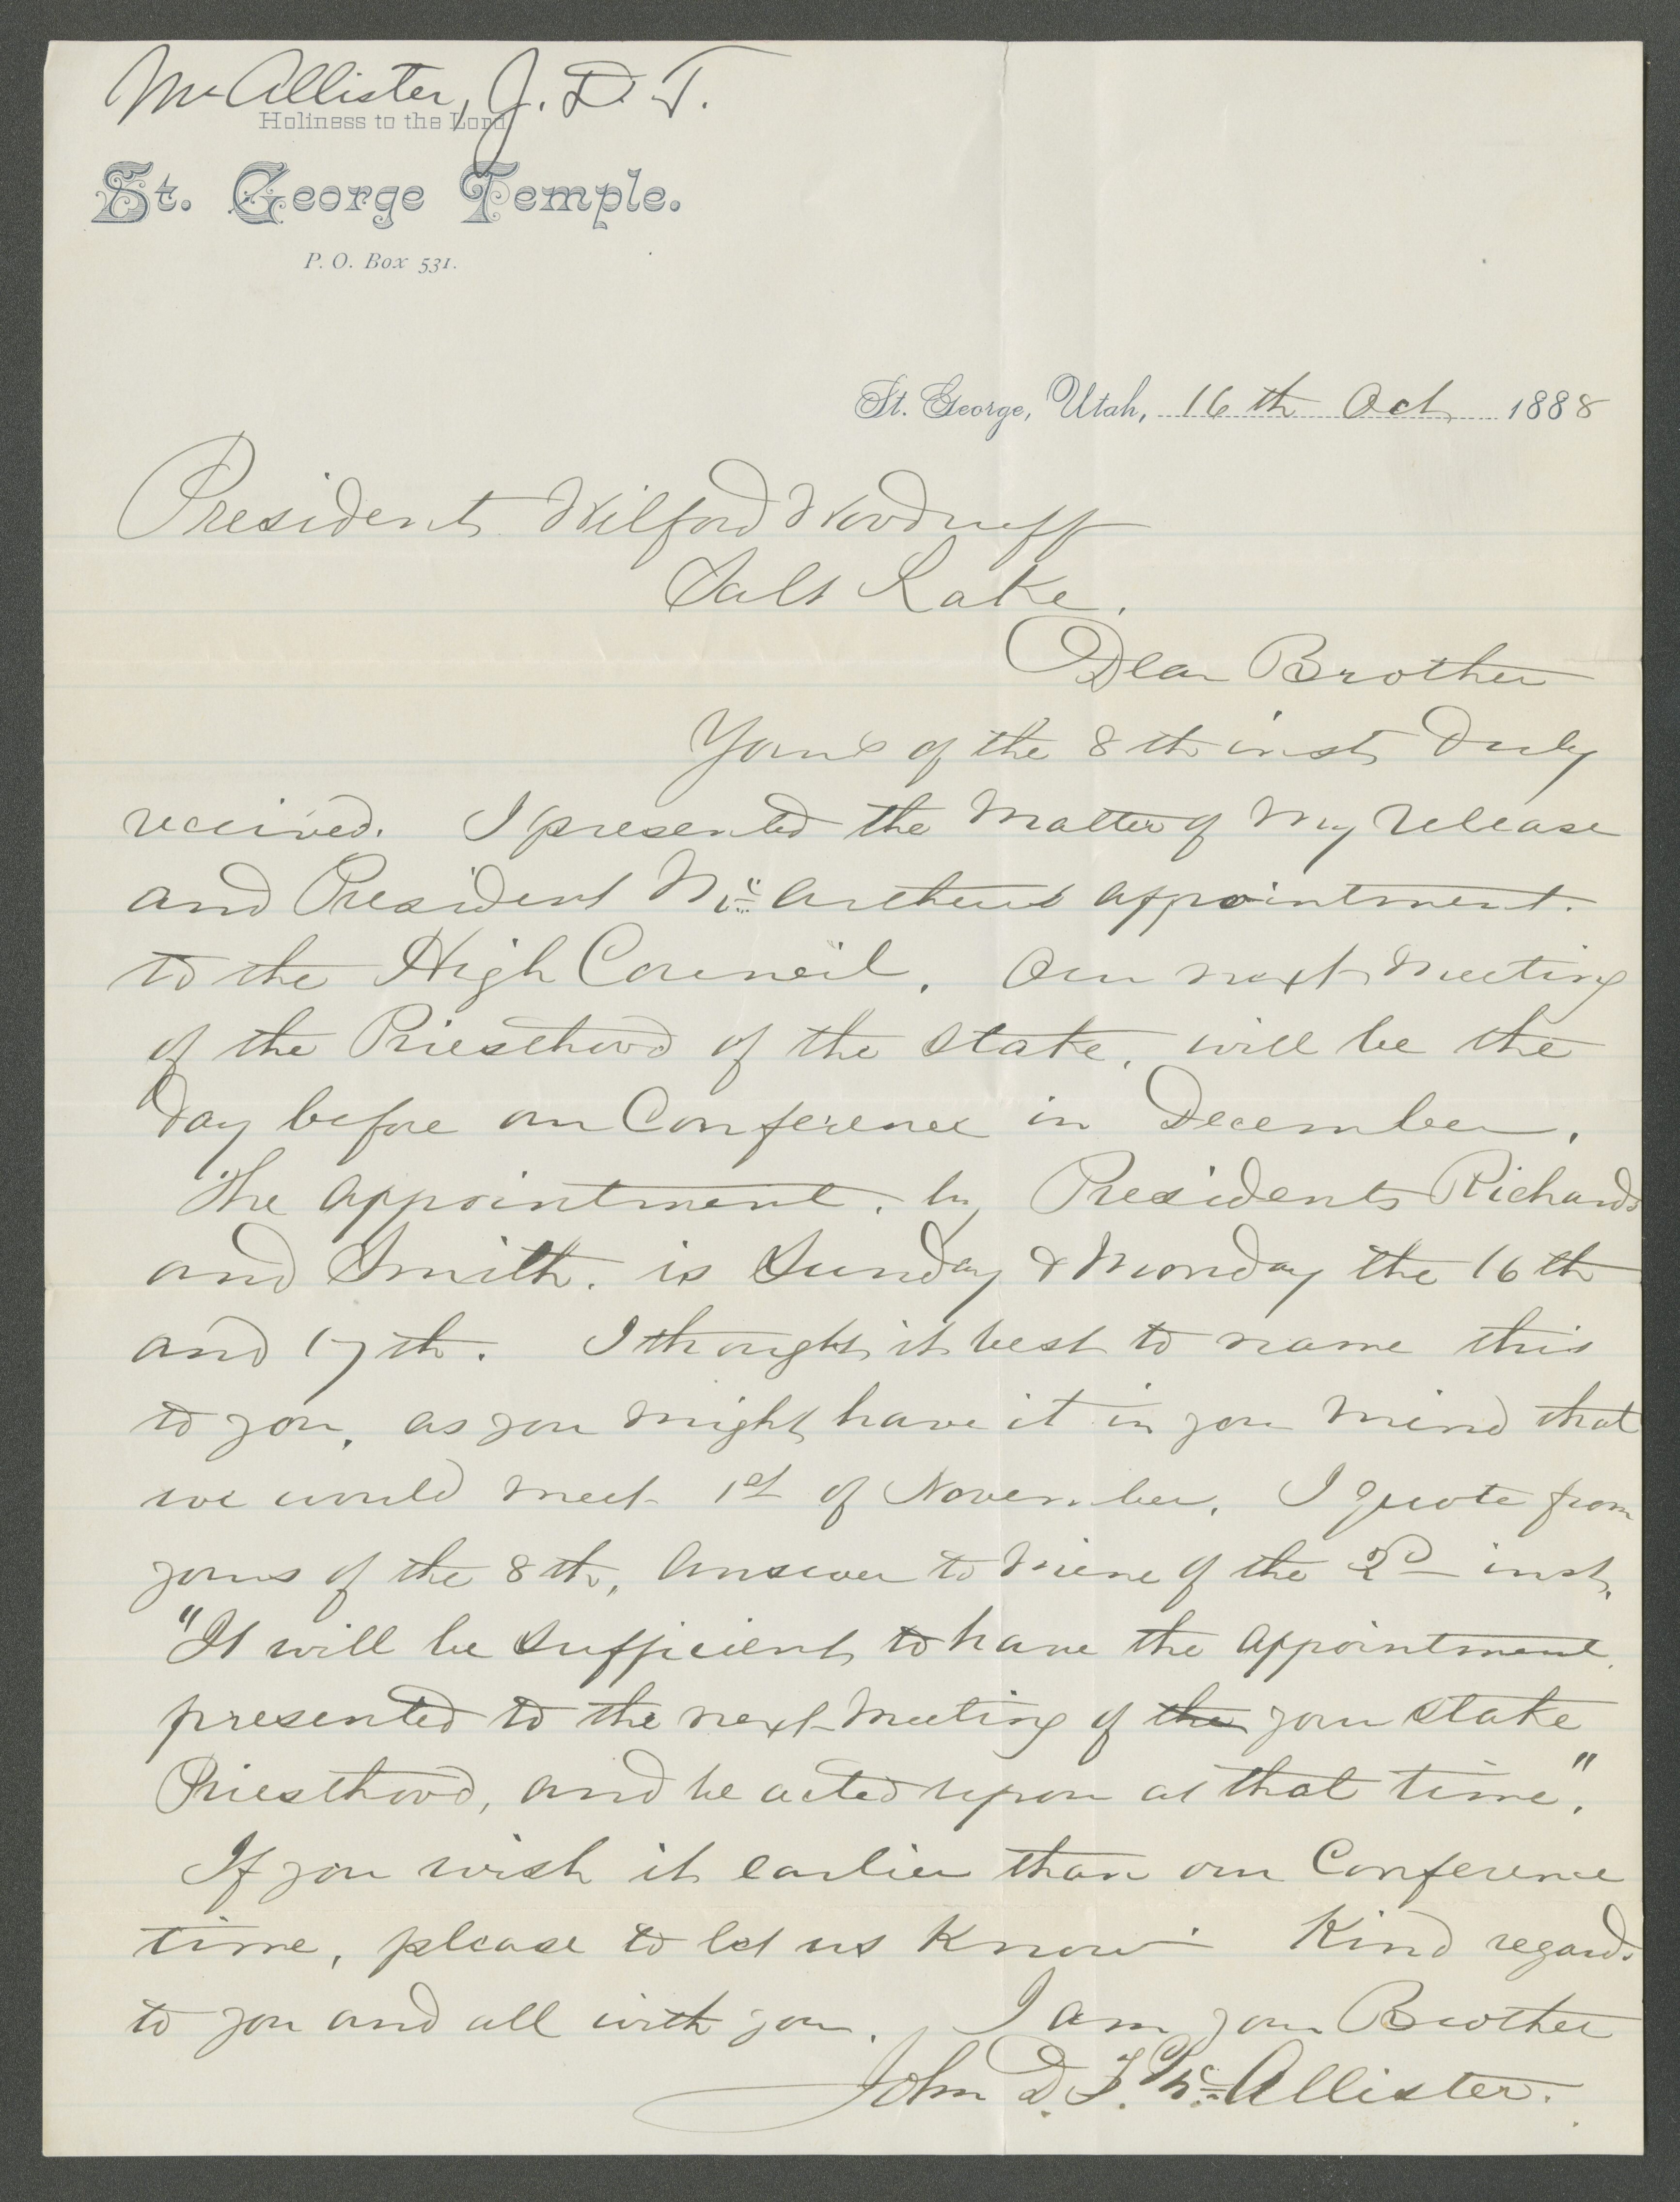 McAllister, J. D. T.
Holiness to the Lord
St. George Temple.
P. O. Box 531.
St. George, Utah, 16th Oct 1888
President Wilford Woodruff
Salt Lake.
Dear Brother
Yours of the 8th inst duly
recieved. I presented the matter of my release
and President McArthurs appointment.
to the High Council. Our next meeting
of the Priesthood of the Stake, will be the
day before our Conference in December.
The appointment. by Presidents Richards
and Smith. is Sunday & Monday the 16th
and 17th. I thought it best to name this
to you, as you might have it in your mind that
we would meet 1st of November. I quote from
yours of the 8th, answer to mine of the 2d inst,
"It will be sufficient to have the appointment
presented to the next meeting of the your Stake
Priesthood, and be acted upon at that time".
If you wish it earlier than our Conference
time, please to let us know Kind regards
to you and all with you. I am your Brother
John D. T. McAllister.